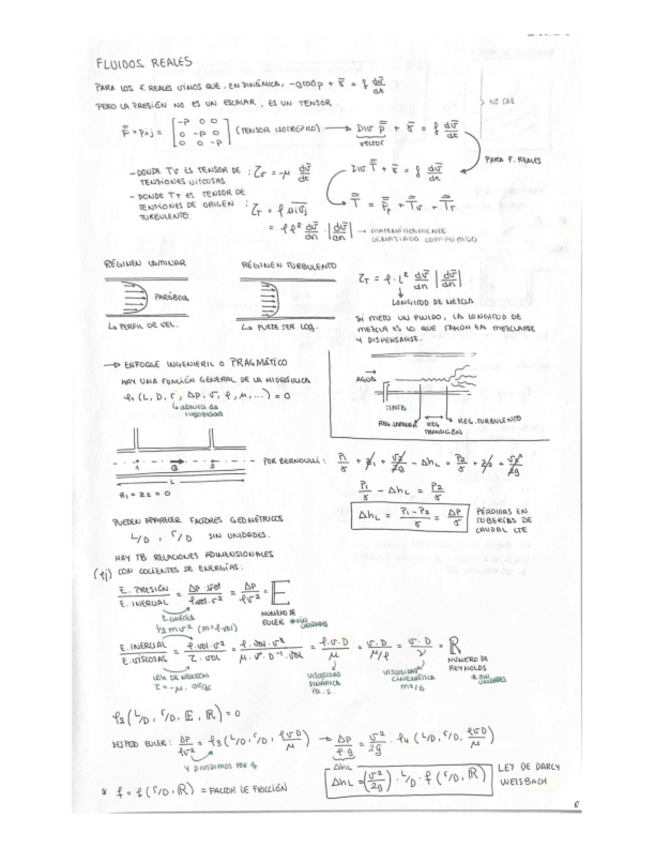 FLUIDOS REALES
PARA LOS F. REALES VIMOS QUE, EN DINÁMICA, -grad p + r̄ = ρ dv̄/dt
PERO LA PRESIÓN NO ES UN ESCALAR, ES UN TENSOR.
> NO CAE
[-P 0 0
0 -P 0
0 0 -P] (TENSOR ISOTRÓPICO) → DIV p̿ + r̄ = ρ dv̄/dt
vector
PARA F. REALES
- DONDE Tv ES TENSOR DE TENSIONES VISCOSAS : τv = -μ dv̄/dt
DIV T̿ + r̄ = ρ dv̄/dt
- DONDE Tt ES TENSOR DE TENSIONES DE ORIGEN TURBULENTO
= ρ l² dv̄/dn · |dv̄/dn| → MATEMÁTICAMENTE DEMASIADO COMPLICADO
RÉGIMEN LAMINAR
PARÁBOLA
↳ PERFIL DE VEL.
RÉGIMEN TURBULENTO
↳ PUEDE SER LOG.
τT = ρ · l² dv̄/dn |dv̄/dn|
LONGITUD DE MEZCLA
SI METO UN FLUIDO, LA LONGITUD DE
MEZCLA ES LO QUE TARDA EN MEZCLARSE
Y DISPERSARSE.
→ ENFOQUE INGENIERIL O PRAGMÁTICO
HAY UNA FUNCIÓN GENERAL DE LA HIDRÁULICA
φ1 (L, D, r, ΔP, v, ρ, μ, ...) = 0
↳ altura de rugosidad
AGUA
TINTA
REG. LAMINAR
REG. TRANSICIÓN
REG. TURBULENTO
1 Q 2
L
z1 = z2 = 0
POR BERNOULLI: P1/γ + z1 + v²/2g - ΔhL = P2/γ + z2 + v²/2g
P1/γ - ΔhL = P2/γ
ΔhL = P1 - P2/γ = ΔP/γ
PÉRDIDAS EN TUBERÍAS DE CAUDAL CTE
PUEDEN APARECER FACTORES GEOMÉTRICOS
L/D, r/D SIN UNIDADES.
HAY TB RELACIONES ADIMENSIONALES
CON COCIENTES DE ENERGÍAS:
E. PRESIÓN/E. INERCIAL = ΔP · vol/ρ·vol·v² = ΔP/ρv² = 𝔼
E. CINÉTICA
1/2 m v² (m = ρ·vol)
NUMERO DE EULER * SIN UNIDADES
E. INERCIAL/E. VISCOSAS = ρ·vol·v²/τ·vol = ρ·vol·v²/μ·v·D⁻¹·vol = ρ·v·D/μ = v·D/μ/ρ = v·D/ν = ℝ
LEY DE NEWTON
VISCOSIDAD DINÁMICA
VISCOSIDAD CINEMÁTICA
NUMERO DE REYNOLDS
* SIN UNIDADES
φ2 (L/D, r/D, 𝔼, ℝ) = 0
DESPEJO EULER: ΔP/ρv² = φ3 (L/D, r/D, ρvD/μ) → ΔP/ρ·g = v²/2g · φ4 (L/D, r/D, ρvD/μ)
Y DIVIDIMOS POR g
ΔhL
ΔhL = (v²/2g) · L/D · f (r/D, ℝ)
LEY DE DARCY WEISBACH
* f = f (r/D, ℝ) = FACTOR DE FRICCIÓN